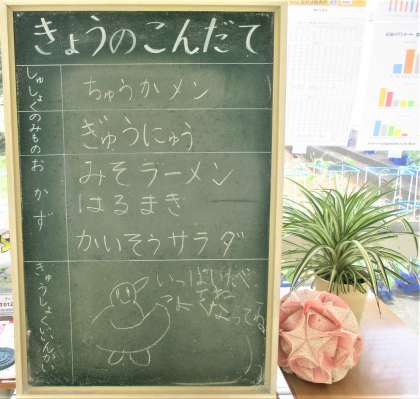 きょうのこんだて
しゅしょく
ちゅうかメン
のみもの
ぎゅうにゅう
おかず
みそラーメン
はるまき
かいそうサラダ
きゅうしょくいいんかい
いっぱいたべ